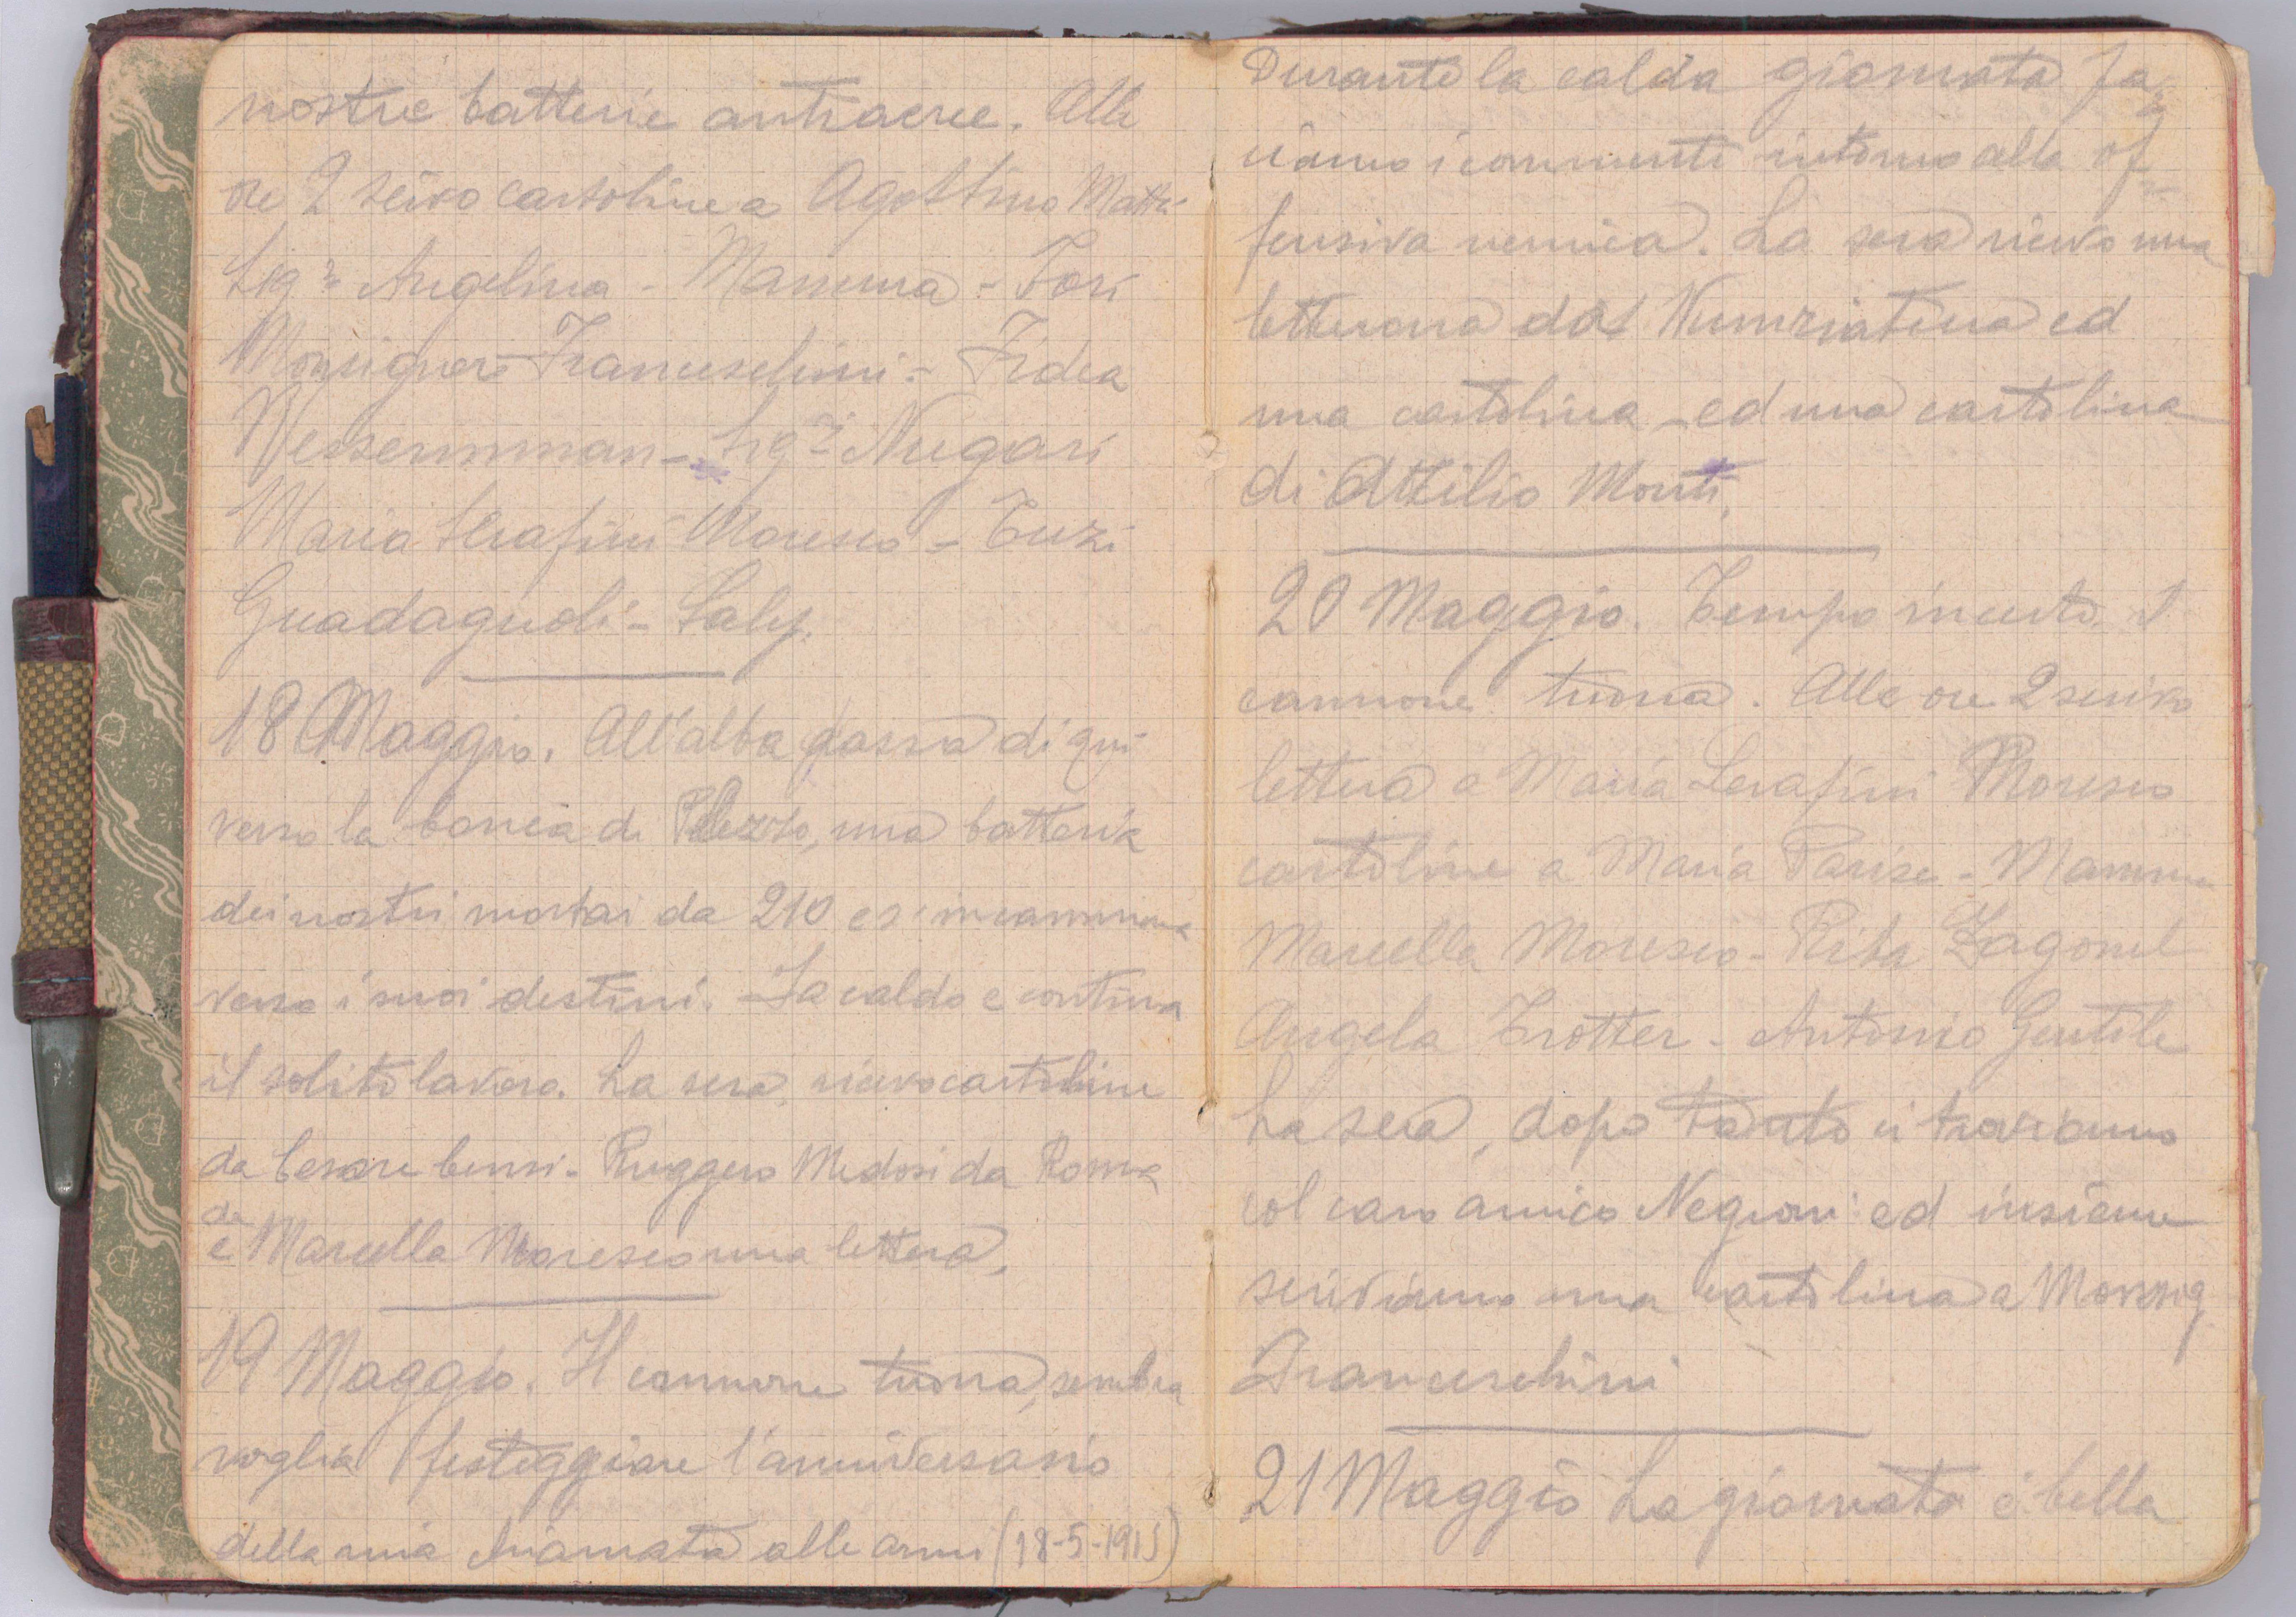 nostre batterie antiaeree. Alle
ore 2 scrivo cartoline a Agostino Mattei
Sig.ra Angelina - Mamma - Fosi
Monsignore Franceschini - Fidea
- Sig.ra Nugari
Maria Serafini Moresco - Tuzi
Guadagnoli - Saly.
18 Maggio. All'alba passa di qui
verso la conca di Plezzo, una batteria
dei nostri mortai da 210 e s'incammina
verso i suoi destini. Fa caldo e continua
il solito lavoro. La sera, ricevo cartoline
da Cesare Censi - Ruggero Medosi da Roma
da
e Marcella Moresco una lettera.
19 Maggio. Il cannone tuona, sembra
voglia festeggiare l'anniversario
della mia chiamata alle armi (18-5-1915)
Durante la calda giornata fac=
ciamo i commenti intorno alla of=
fensiva nemica. La sera ricevo una
letterona da Nunziatina ed
una cartolina - ed una cartolina
di Attilio Monti.
20 Maggio. Tempo incerto. Il
cannone tuona. Alle ore 2 scrivo
lettera a Maria Serafini Moresco
cartoline a Maria Parise - Mamma
Marcella Moresco - Rita Zagonel
Angela Trotter - Antonio Gentile
La sera, dopo ci troviamo
col caro amico Negroni ed insieme
scriviamo una cartolina a Monsig.
Franceschini
21 Maggio La giornata è bella